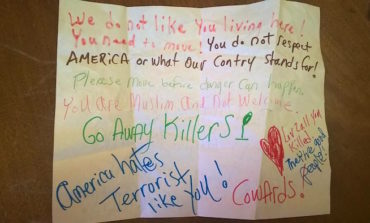 We do not like you living here!
You need to move! You do not respect
AMERICA or what Our Contry stands for!
Please move before danger Can happen.
You Are Muslim And Not Welcome
GO AWAY KILLERS!
you
Killed
people!
America hates
Terrorist
like You!
Cowards!